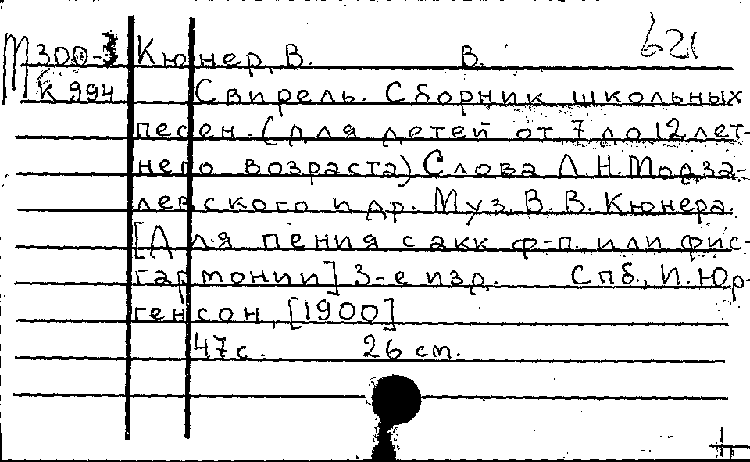 М300-3 Кюнер, В. В. 621
К 994 Свирель. Сборник школьных
песен. (для детей от 7 до 12 лет-
него возраста) Слова Л. Н. Модза-
левского и др. Муз. В. В. Кюнера.
[Для пения с акк. ф-п. или фис-
гармонии] 3-е изд. Спб., И. Юр-
генсон, [1900]
47 с. 26 см.